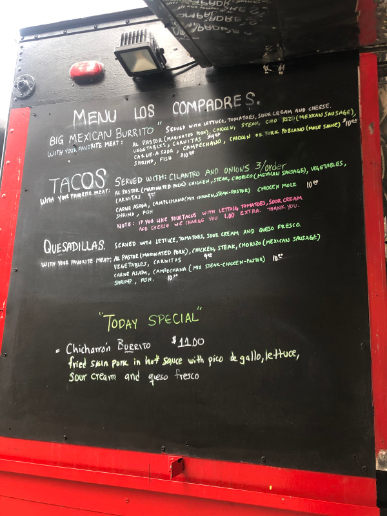 MENU LOS COMPADRES.
BIG MEXICAN BURRITO SERVED WITH LETTUCE, TOMATOES, SOUR CREAM AND CHEESE.
WITH YOUR FAVORITE MEAT: AL PASTOR (MARINATED PORK) CHICKEN, STEAK, CHORIZO (MEXICAN SAUSAGE),
VEGETABLES, CARNITAS
CARNE ASADA, CAMPECHANA, CHICKEN POBLANO
SHRIMP, FISH
TACOS SERVED WITH: CILANTRO AND ONIONS 3/order
WITH YOUR FAVORITE MEAT: AL PASTOR (MARINATED PORK) CHICKEN, STEAK, CHORIZO (MEXICAN SAUSAGE), VEGETABLES,
CARNITAS
CARNE ASADA, CAMPECHANA CHICKEN MOLE
SHRIMP, FISH
NOTE: IF YOU LIKE YOUR TACOS WITH LETTUCE, TOMATOES, SOUR CREAM
AND CHEESE WE CHARGE YOU 1.00 EXTRA. THANK YOU.
QUESADILLAS. SERVED WITH LETTUCE, TOMATOES, SOUR CREAM AND QUESO FRESCO.
WITH YOUR FAVORITE MEAT: AL PASTOR (MARINATED PORK), CHICKEN, STEAK, CHORIZO (MEXICAN SAUSAGE)
VEGETABLES, CARNITAS
CARNE ASADA, CAMPECHANA (MIX STEAK-CHICKEN-PASTOR)
SHRIMP, FISH.
"TODAY SPECIAL"
Chicharrón BURRITO $11.00
fried skin pork in hot sauce with pico de gallo, lettuce,
sour cream and queso fresco